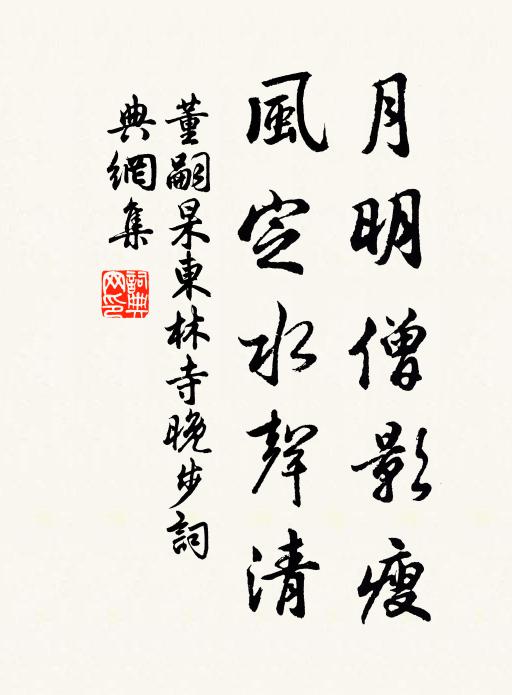 月明僧影瘦
風定水聲清
董嗣杲東林寺晚步詞
典網集
詞典網印